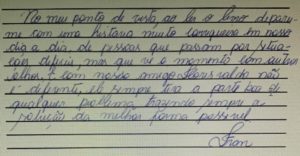 No meu ponto de vista ao ler o livro deparei
me com uma história muito corriqueira em nosso
dia a dia, de pessoas que passam por situa
ções difíceis, mas que vê o momento com outros
olhos. E com nosso amigo não
é diferente, ele sempre tira a parte boa de
qualquer problema, trazendo sempre a
solução da melhor forma possível.
Fran